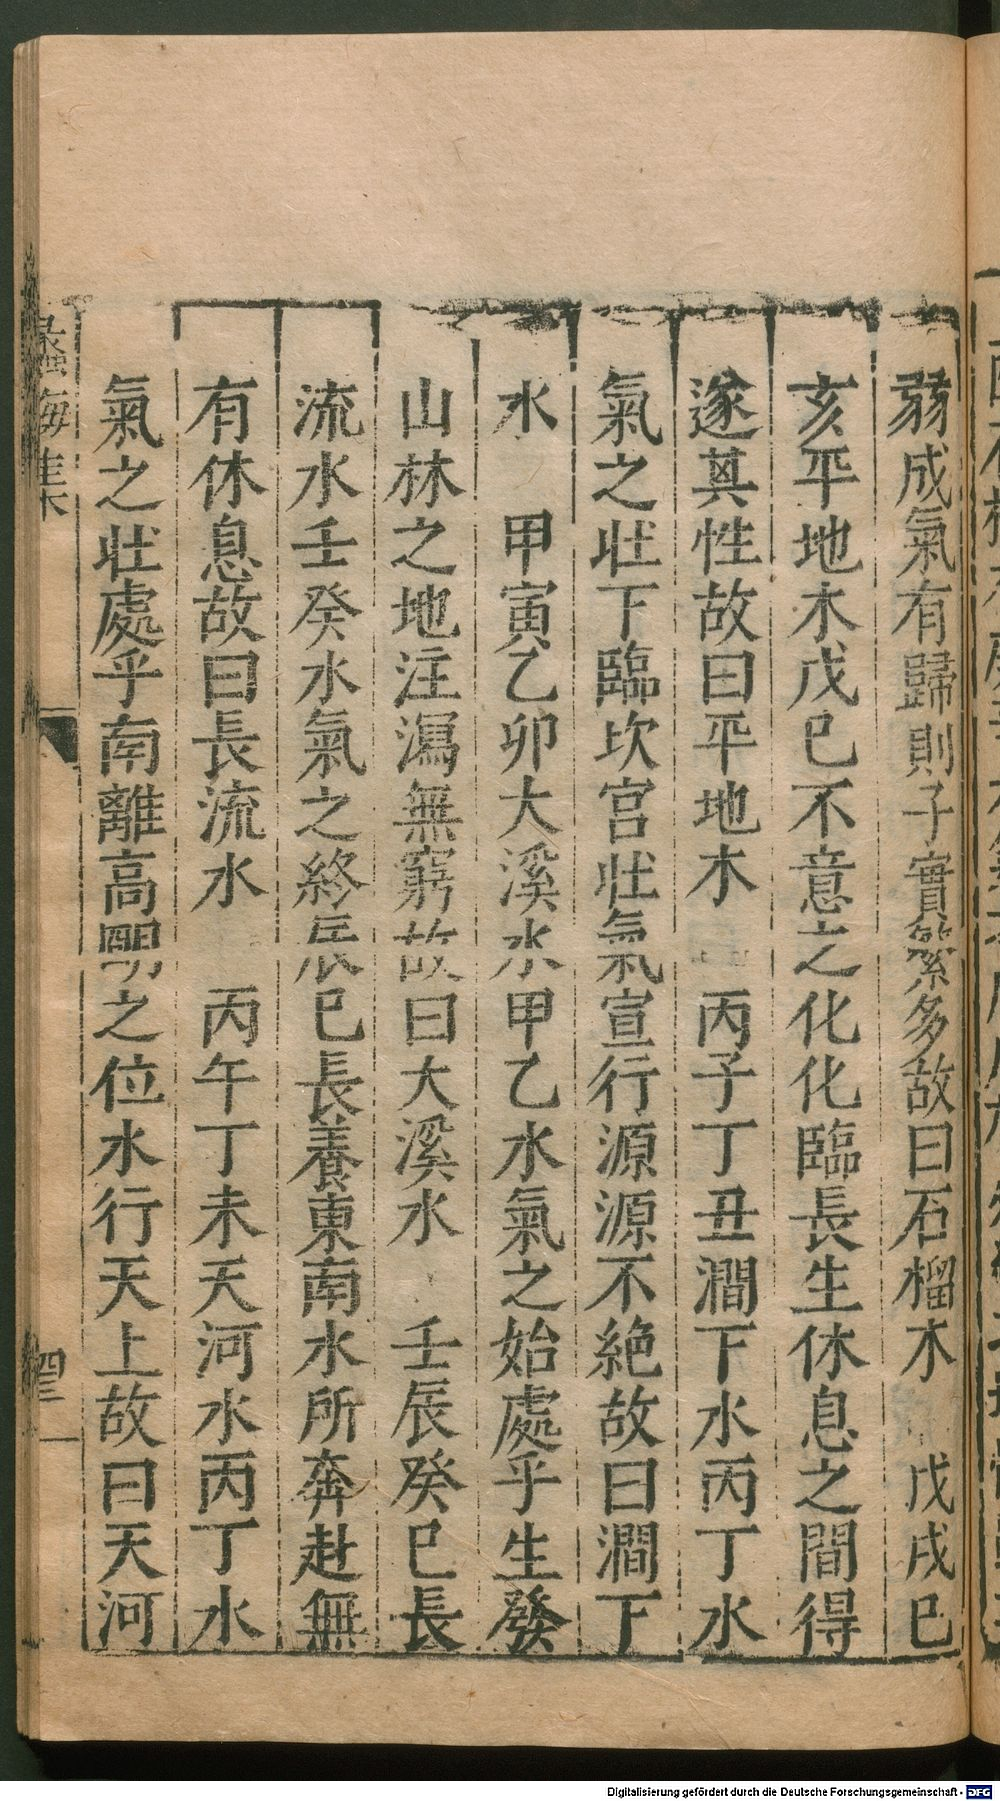 弱成氣有歸則子實繁多故曰石榴木　戊戌巳
亥平地木戊巳不意之化化臨長生休息之間得
遂其性故曰平地木　丙子丁丑澗下水丙丁水
氣之壯下臨坎宫壯氣宣行源源不絶故曰澗下
水　甲寅乙卯大溪水甲乙水氣之始處乎生發
山林之地注瀉無窮故曰大溪水　壬辰癸巳長
流水壬癸水氣之終辰巳長養東南水所奔赴無
有休息故曰長流水　丙午丁未天河水丙丁水
氣之壯處乎南離高明之位水行天上故曰天河
蠡海集
Digitalisierung gefördert durch die Deutsche Forschungsgemeinschaft - DFG